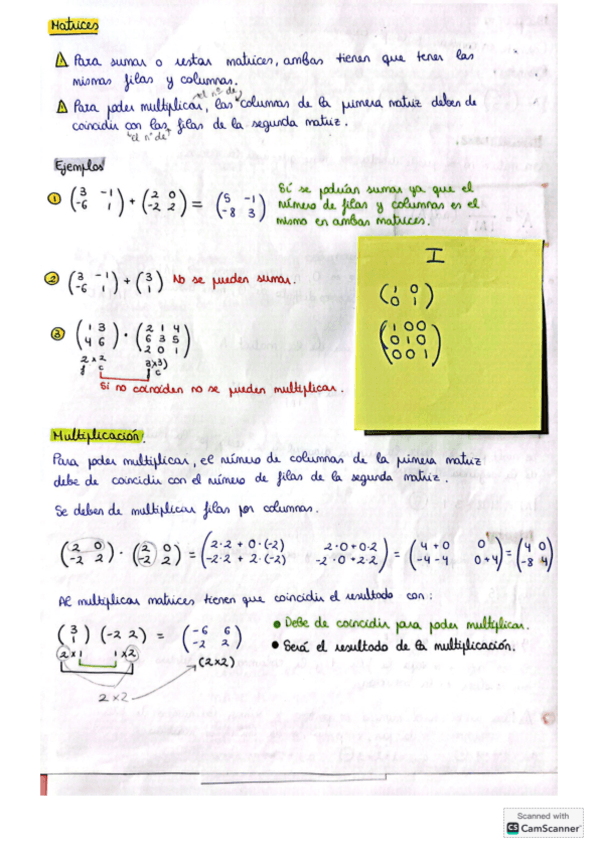 Matrices
⚠ Para sumar o restar matrices, ambas tienen que tener las
mismas filas y columnas.
"el nº de"
⚠ Para poder multiplicar, las columnas de la primera matriz deben de
coincidir con las filas de la segunda matriz.
"el nº de"
Ejemplos
① (3 -1 / -6 1) + (2 0 / -2 2) = (5 -1 / -8 3)
Sí se podrían sumar ya que el
número de filas y columnas es el
mismo en ambas matrices.
I
(1 0 / 0 1)
(1 0 0 / 0 1 0 / 0 0 1)
② (3 -1 / -6 1) + (3 / 1) No se pueden sumar.
③ (1 3 / 4 6) · (2 1 4 / 6 3 5 / 2 0 1)
2x2 3x3)
f c f c
Si no coinciden no se pueden multiplicar.
Multiplicación.
Para poder multiplicar, el número de columnas de la primera matriz
debe de coincidir con el número de filas de la segunda matriz.
Se deben de multiplicar filas por columnas.
(2 0 / -2 2) · (2 0 / -2 2) = (2·2 + 0·(-2) 2·0+0·2 / -2·2 + 2·(-2) -2·0+2·2) = (4+0 0 / -4-4 0+4) = (4 0 / -8 4)
Al multiplicar matrices tienen que coincidir el resultado con:
(3 / 1) (-2 2) = (-6 6 / -2 2)
2x1 1x2 (2x2)
2x2
• Debe de coincidir para poder multiplicar.
• Será el resultado de la multiplicación.
Scanned with
CS CamScanner